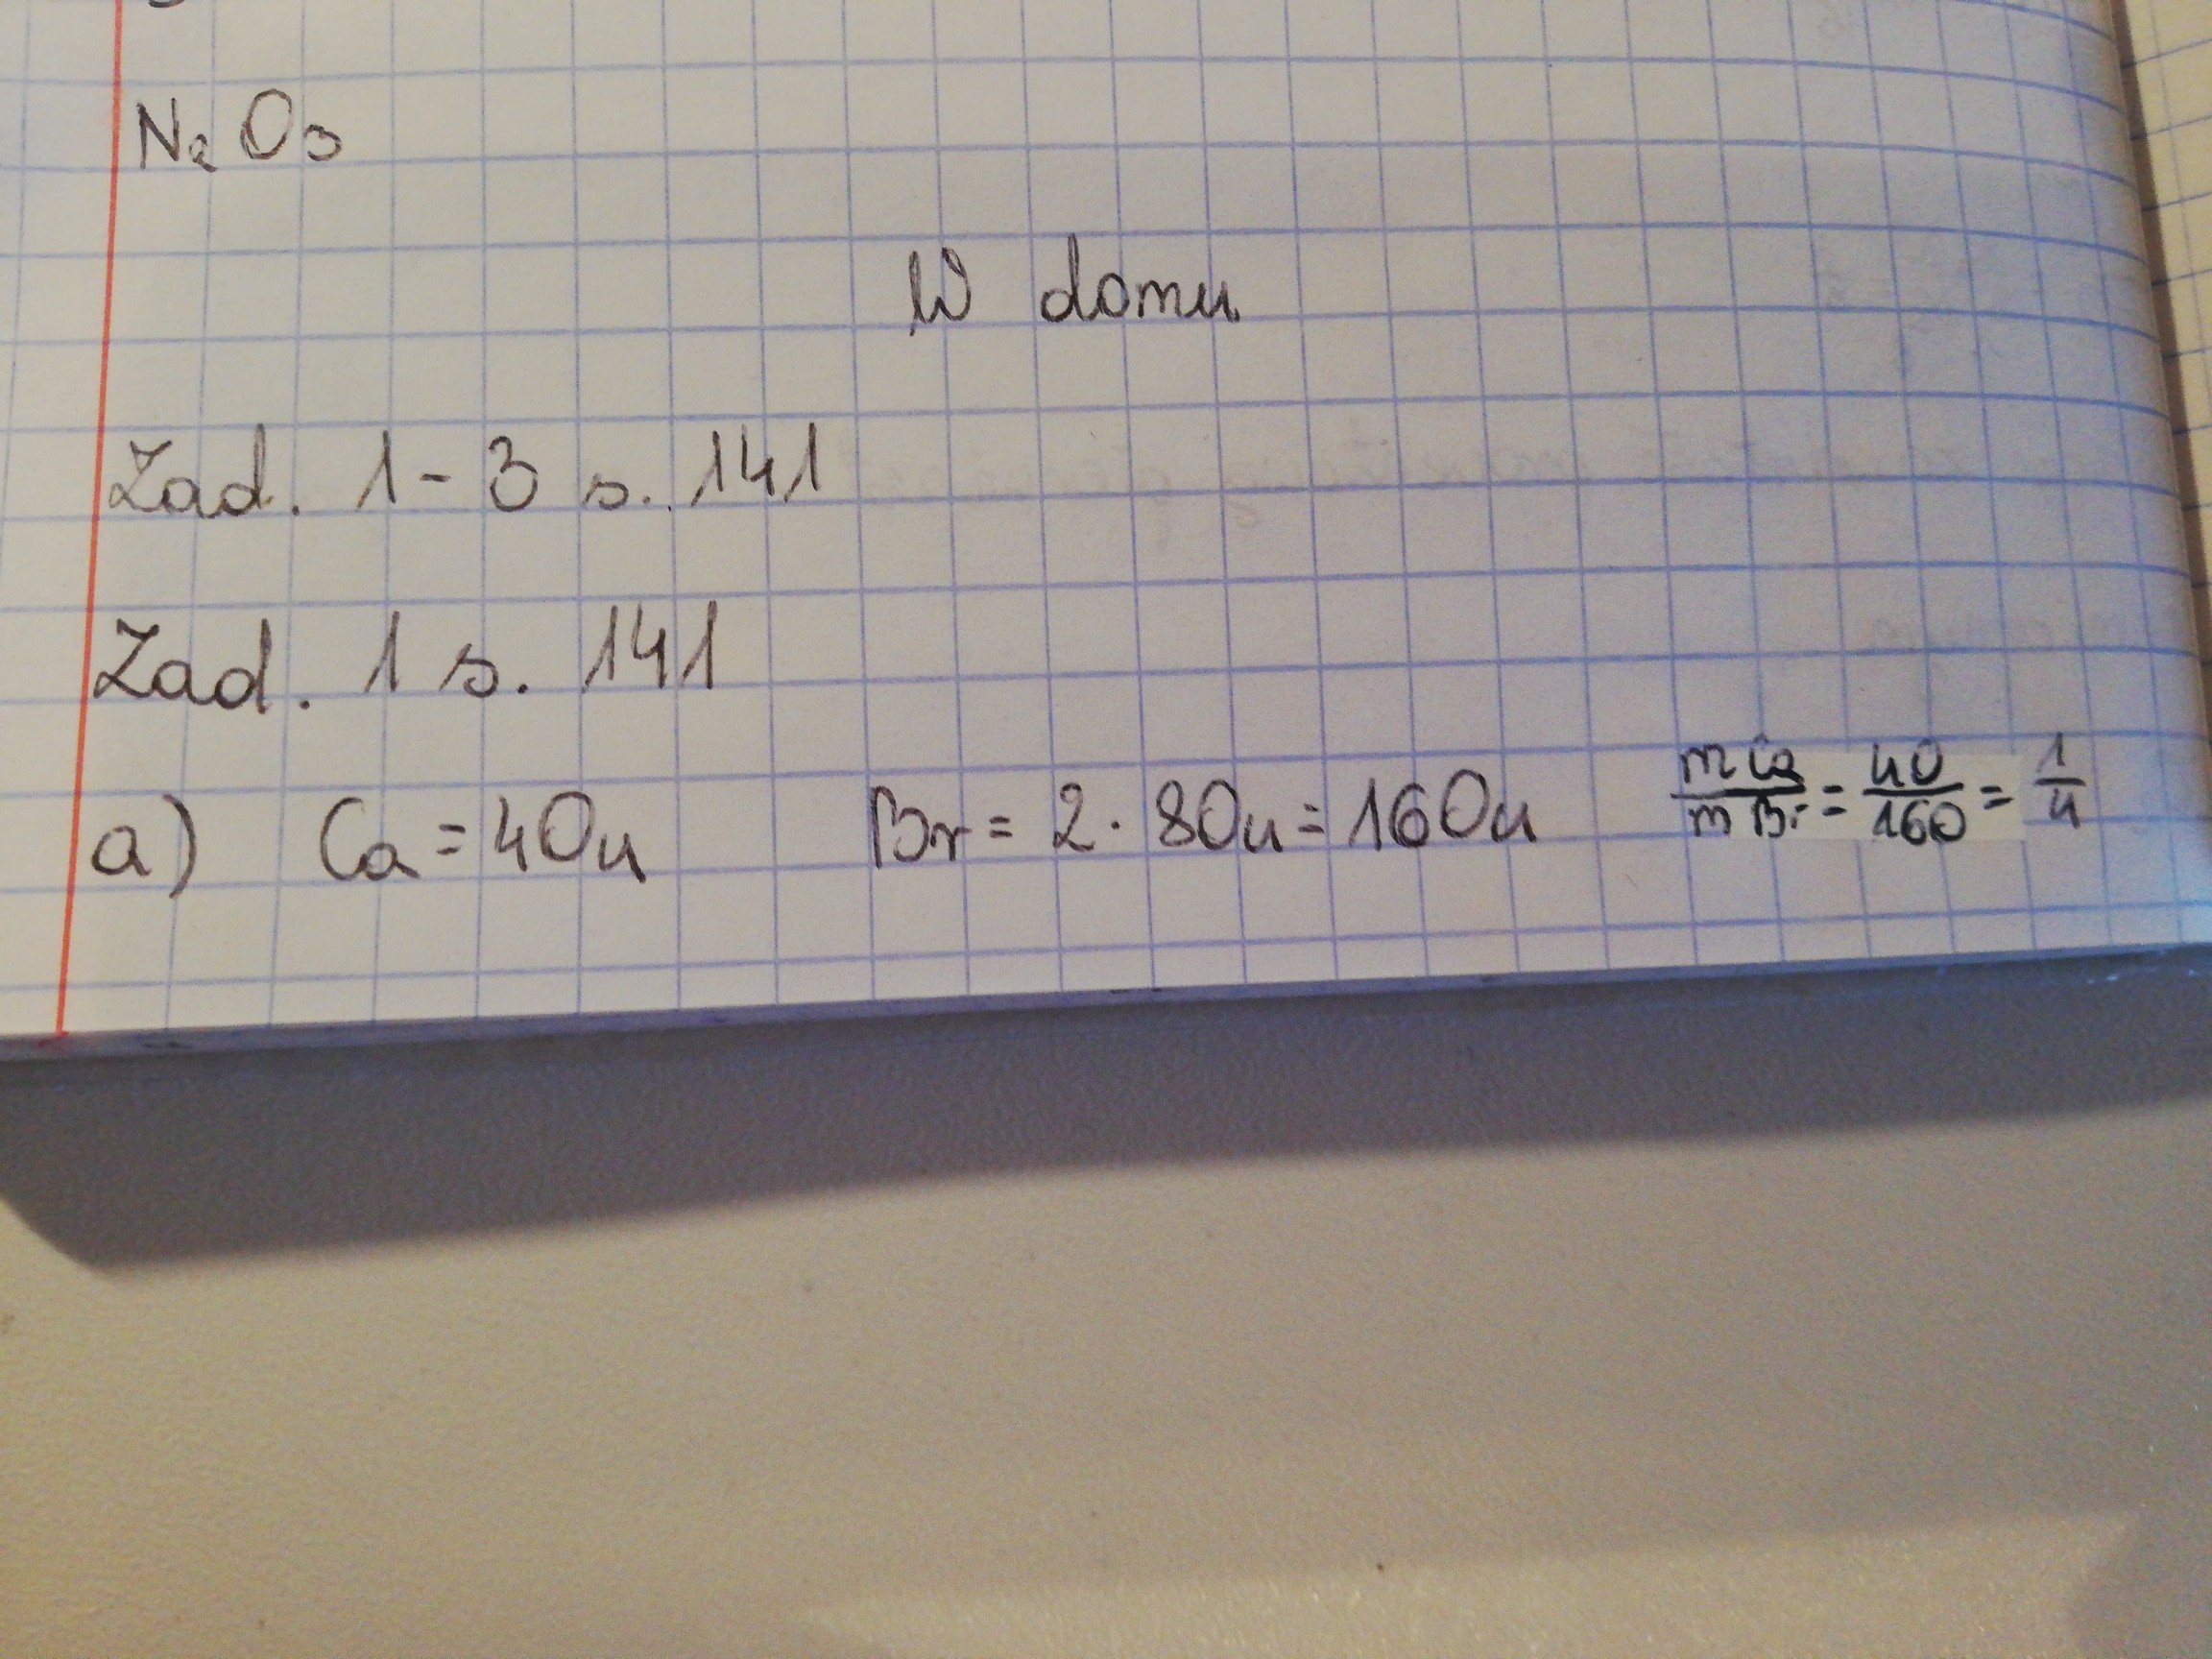 N₂O₃
W domu
Zad. 1-3 s. 141
Zad. 1 s. 141
a) Ca = 40u Br = 2 · 80u = 160u mCa/mBr = 40/160 = 1/4